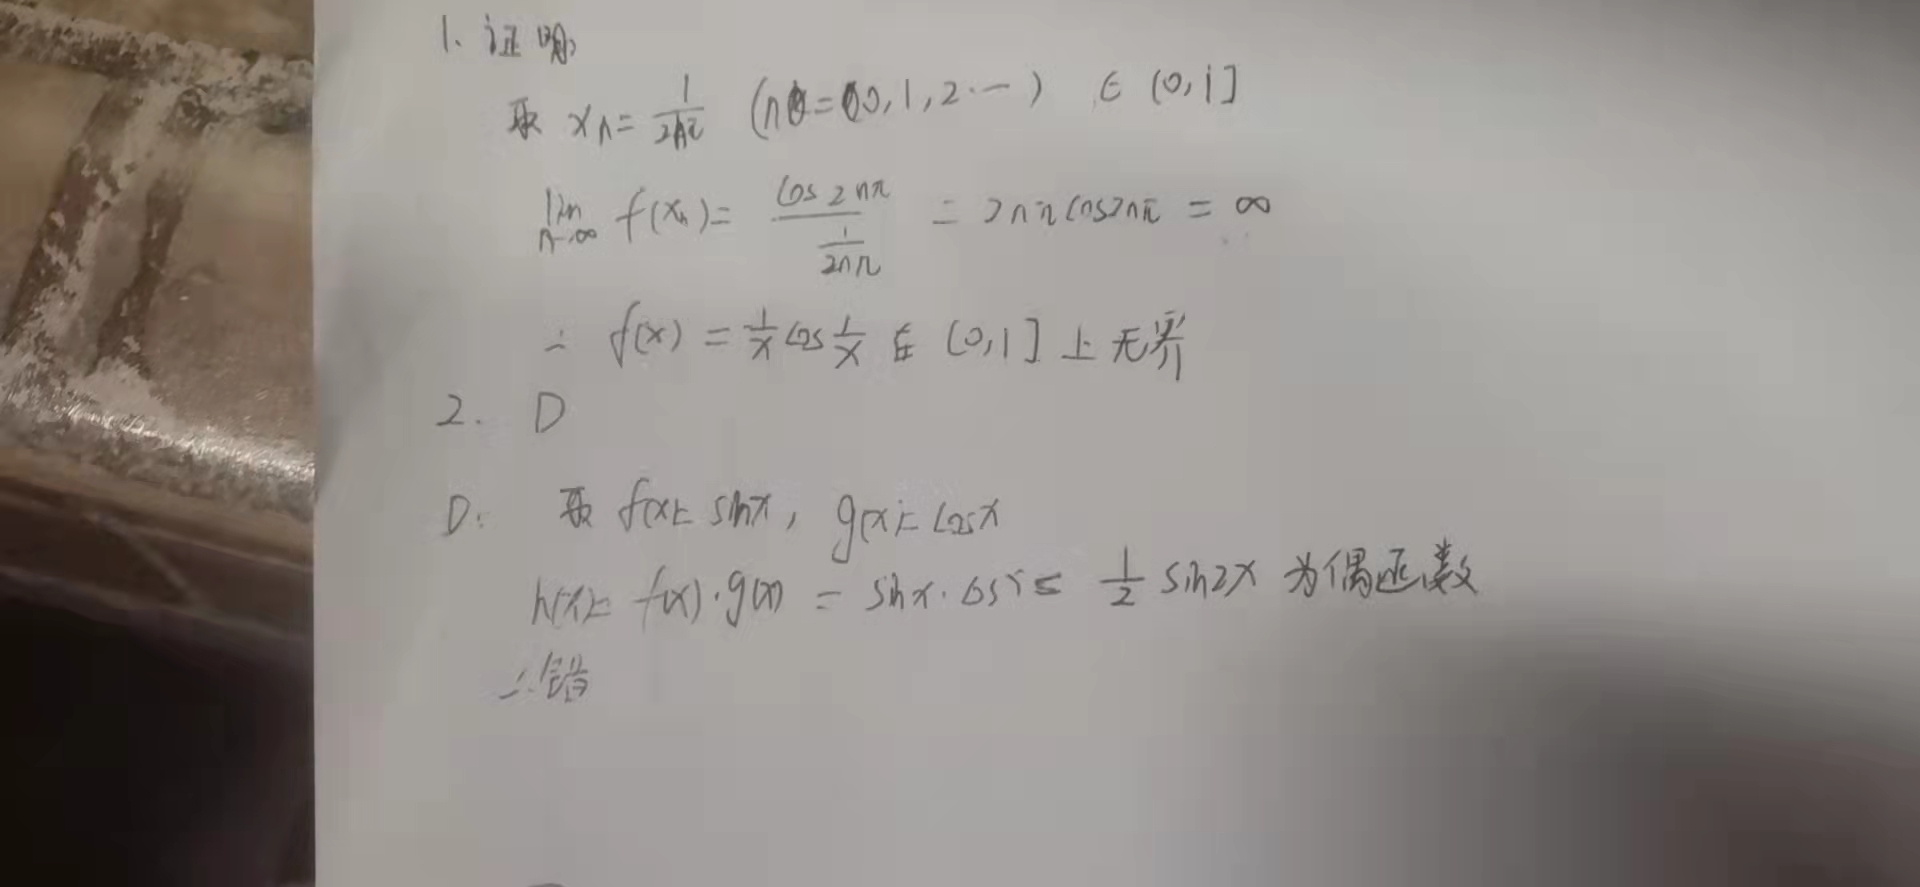 1. 证明
取 xn = 1/2nπ (n=0,1,2…) ∈ (0,1]
lim n→∞ f(xn) = cos2nπ / (1/2nπ) = 2nπcos2nπ = ∞
∴ f(x) = 1/x cos 1/x 在 (0,1] 上无界
2. D
D: 取 f(x)= sinx, g(x)= cosx
h(x)= f(x)·g(x) = sinx·cosx = 1/2 sin2x 为偶函数
∴错